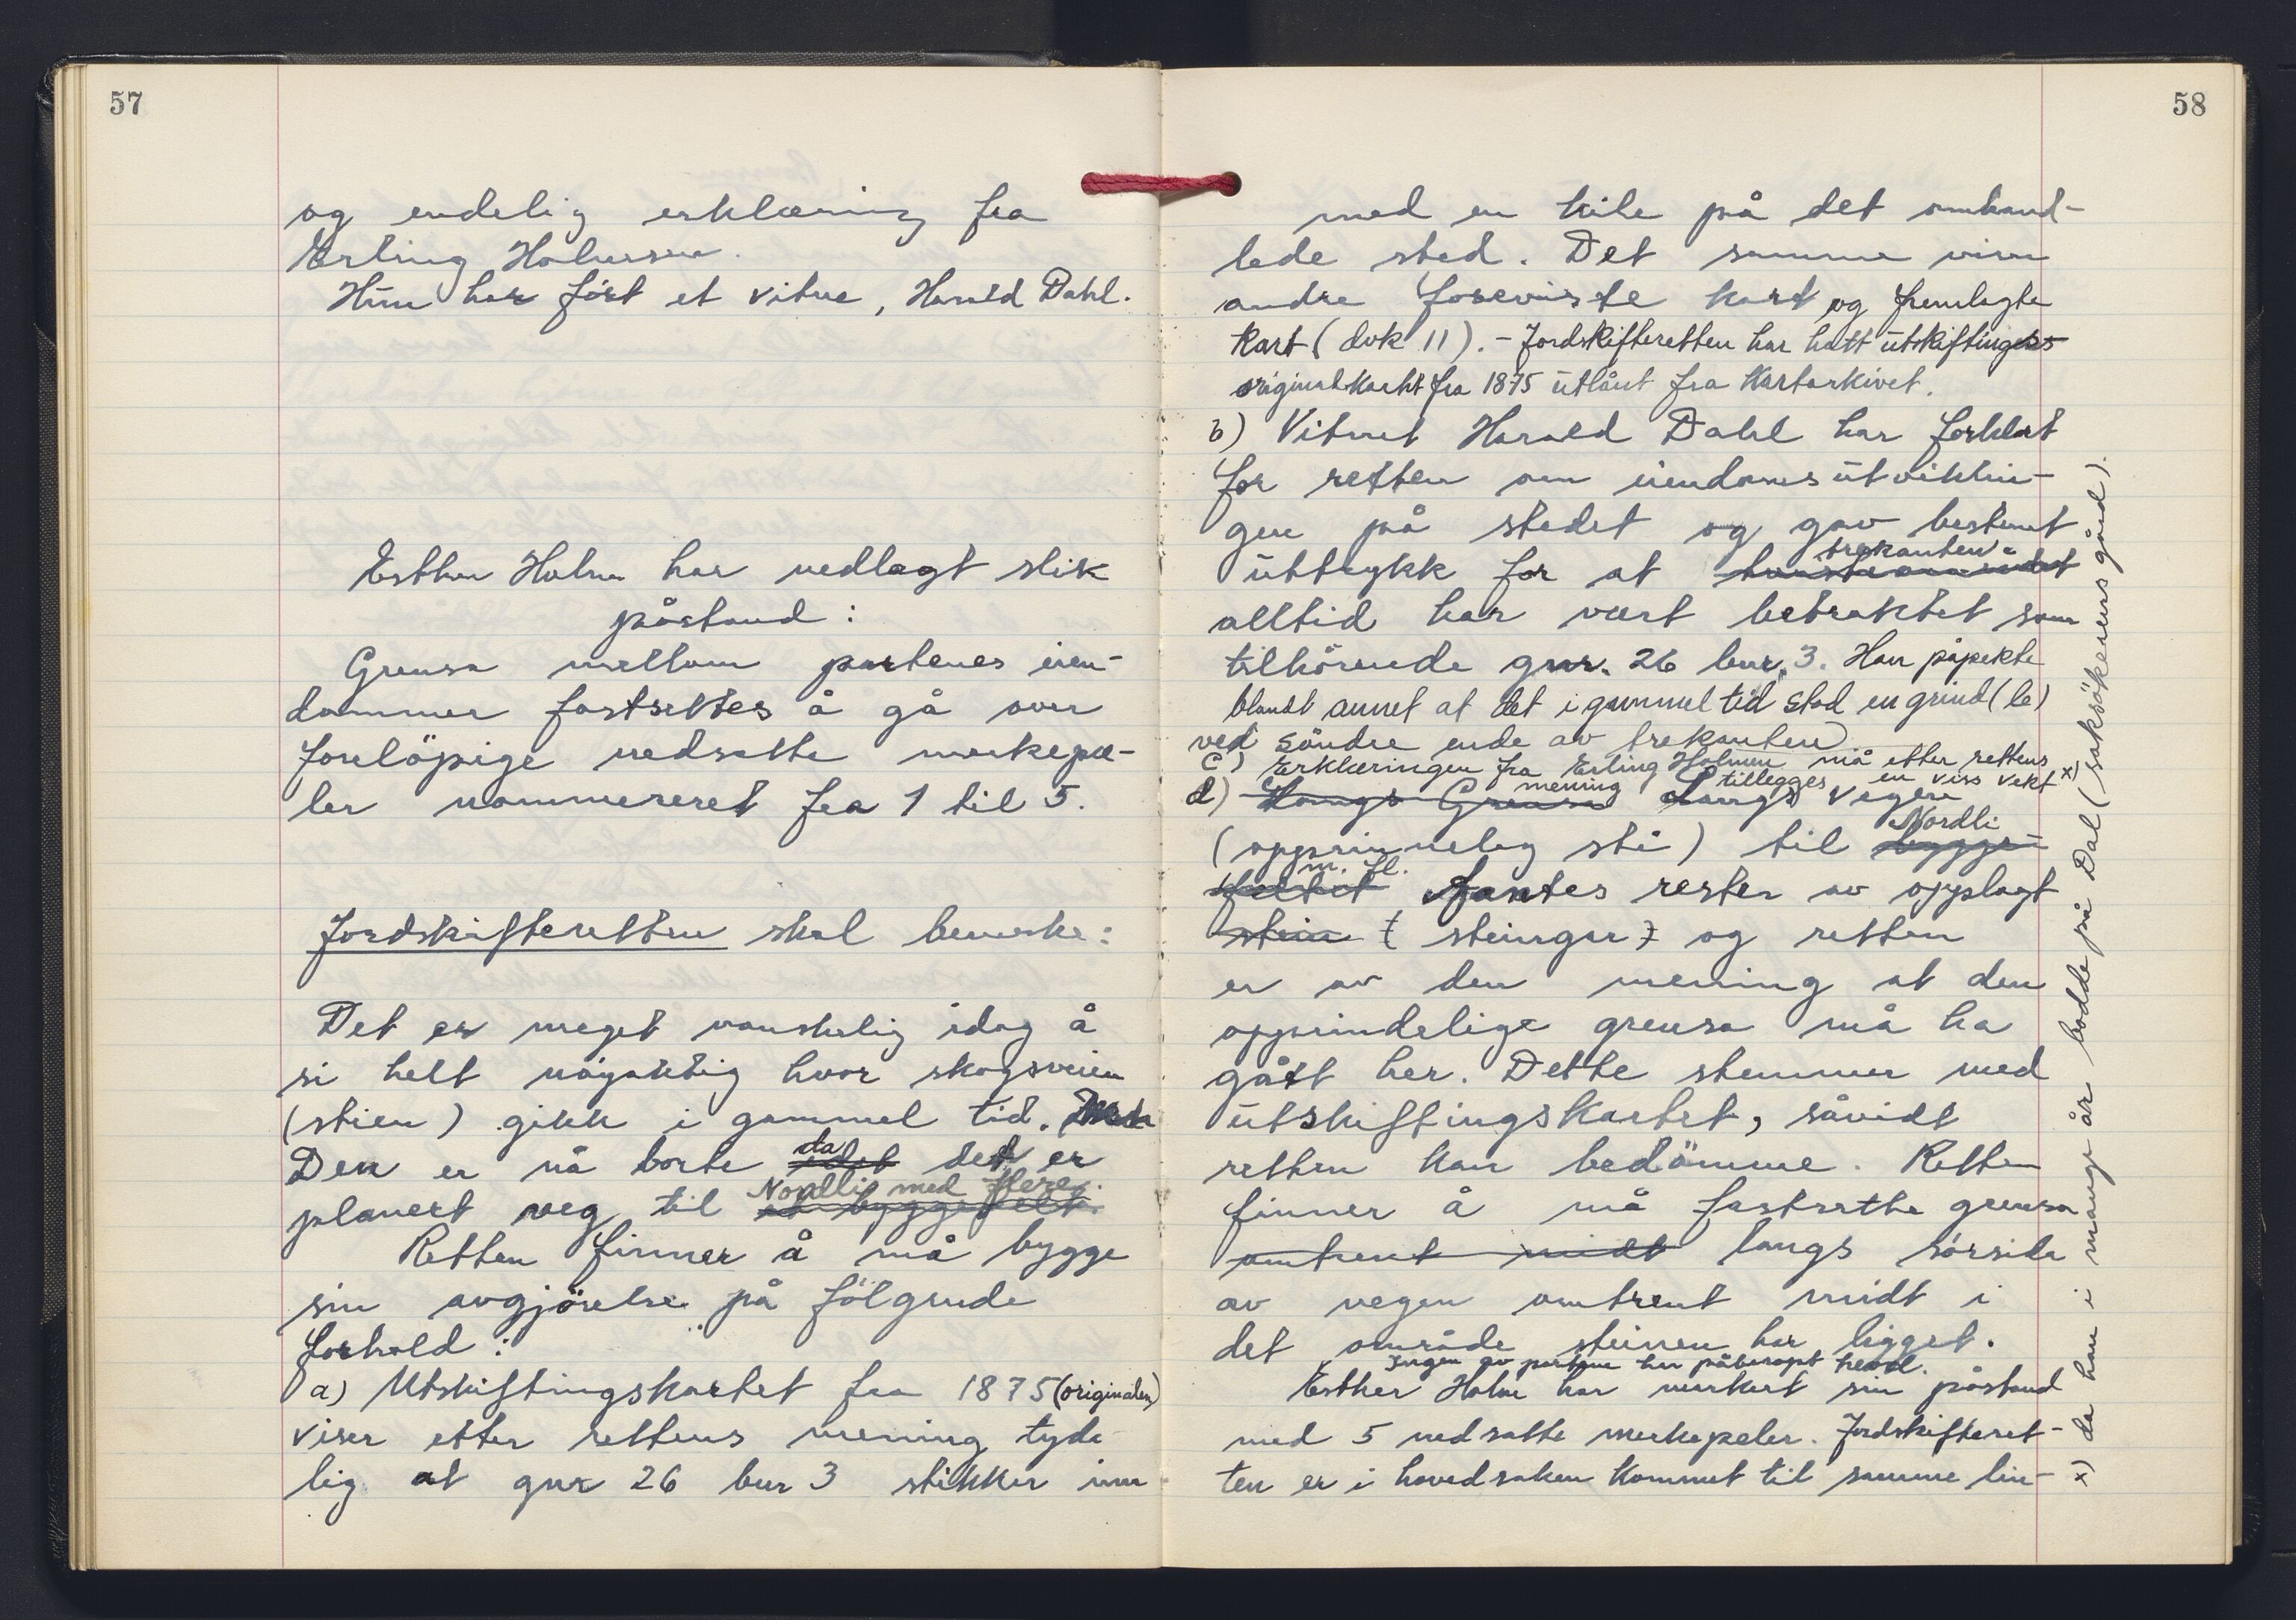 57
og endelig erklæring fra
Erling Holmsen.
Hun har ført et vitne, Harald Dahl.
Esther Holm har nedlagt slik
påstand:
Grensa mellom partenes eien-
dommer fastsettes å gå over
foreløpige nedsatte merkepæ-
ler nommereret fra 1 til 5.
Jordskifteretten skal bemerke:
Det er meget vanskelig idag å
si helt nøyaktig hvor skogsveien
(stien) gikk i gammel tid.
Den er nå borte da det er
planert veg til Nordli med flere.
et byggefelt.
Retten finner å må bygge
sin avgjörelse på fölgende
forhold:
a) Utskiftingskartet fra 1875 (originalen)
viser etter rettens mening tyde
lig at gnr 26 bnr 3 stikker inn
58
med en kile på det omhand-
lede sted. Det samme viser
andre foreviste kart og fremlagte
kart (dok 11). - Jordskifteretten har hatt utskiftings
originalkartet fra 1875 utlånt fra Kartarkivet.
b) Vitnet Harald Dahl har forklart
for retten om eiendomsutviklin-
gen på stedet og gav bestemt
uttrykk for at trekanten
alltid har vært betraktet som
tilhörende gnr. 26 bnr. 3. Han påpekte
blandt annet at det i gammel tid stod en grind (le)
ved söndre ende av trekanten
c) Erklæringen fra Erling Holmen må etter rettens
mening tillegges en viss vekt x)
d) Langs Grensa Langs vegen
(opprinnelig sti) til Nordli
m. fl. fantes rester av opplagt
stein (steingar) og retten
er av den mening at den
opprindelige grensa må ha
gått her. Dette stemmer med
utskiftingskartet, såvidt
retten kan bedömme. Retten
finner å må fastsette grensa
omtrent midt langs sörside
av vegen omtrent midt i
det område steinen har ligget.
Ingen av partene har påberopt hevd.
Esther Holm har merkert sin påstand
med 5 nedsatte merkepeler. Jordskifteret-
ten er i hovedsaken kommet til samme lin-
x) da han i mange år bodde på Dal (saksökerens gård).